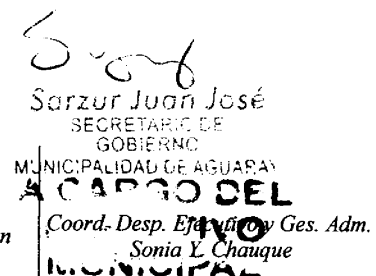 Sarzur Juan José
SECRETARIO DE
GOBIERNO
MUNICIPALIDAD DE AGUARAY
A CARGO DEL
Coord. Desp. Ejecutivo y Ges. Adm.
n Sonia Y. Chauque